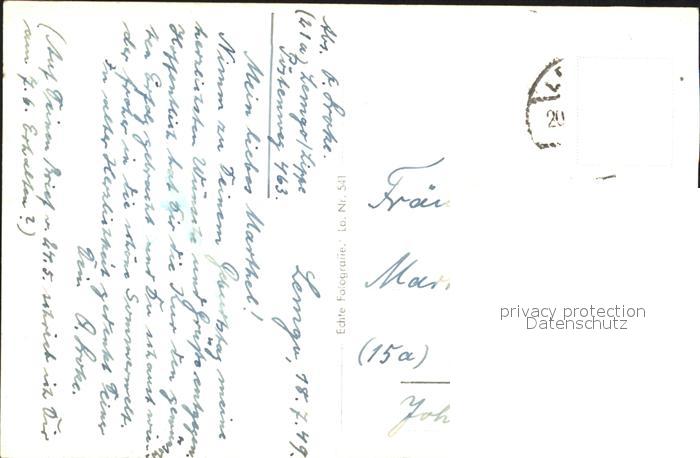 Abs. O. Broke.
(21a) Lemgo/Lippe
463.
Lemgo, 18.7.49.
Mein liebes Marthel!
Nimm zu Deinem Geburtstag meine
herzlichsten Wünsche und Grüße entgegen.
Hoffentlich hat Dir die Kur den gewünsch-
ten Erfolg gebracht und Du schaust wie-
der froher in die schöne Sommerwelt.
In alter Herzlichkeit gedenkt Deiner
Dein O. Broke.
(Auf Deinen Brief v. 24.5. schrieb ich Dir
am 7.6. Erhalten?)
Echte Fotografie: Lo. Nr. 541
20
Fräu
Mar
(15a)
Joh
privacy protection
Datenschutz